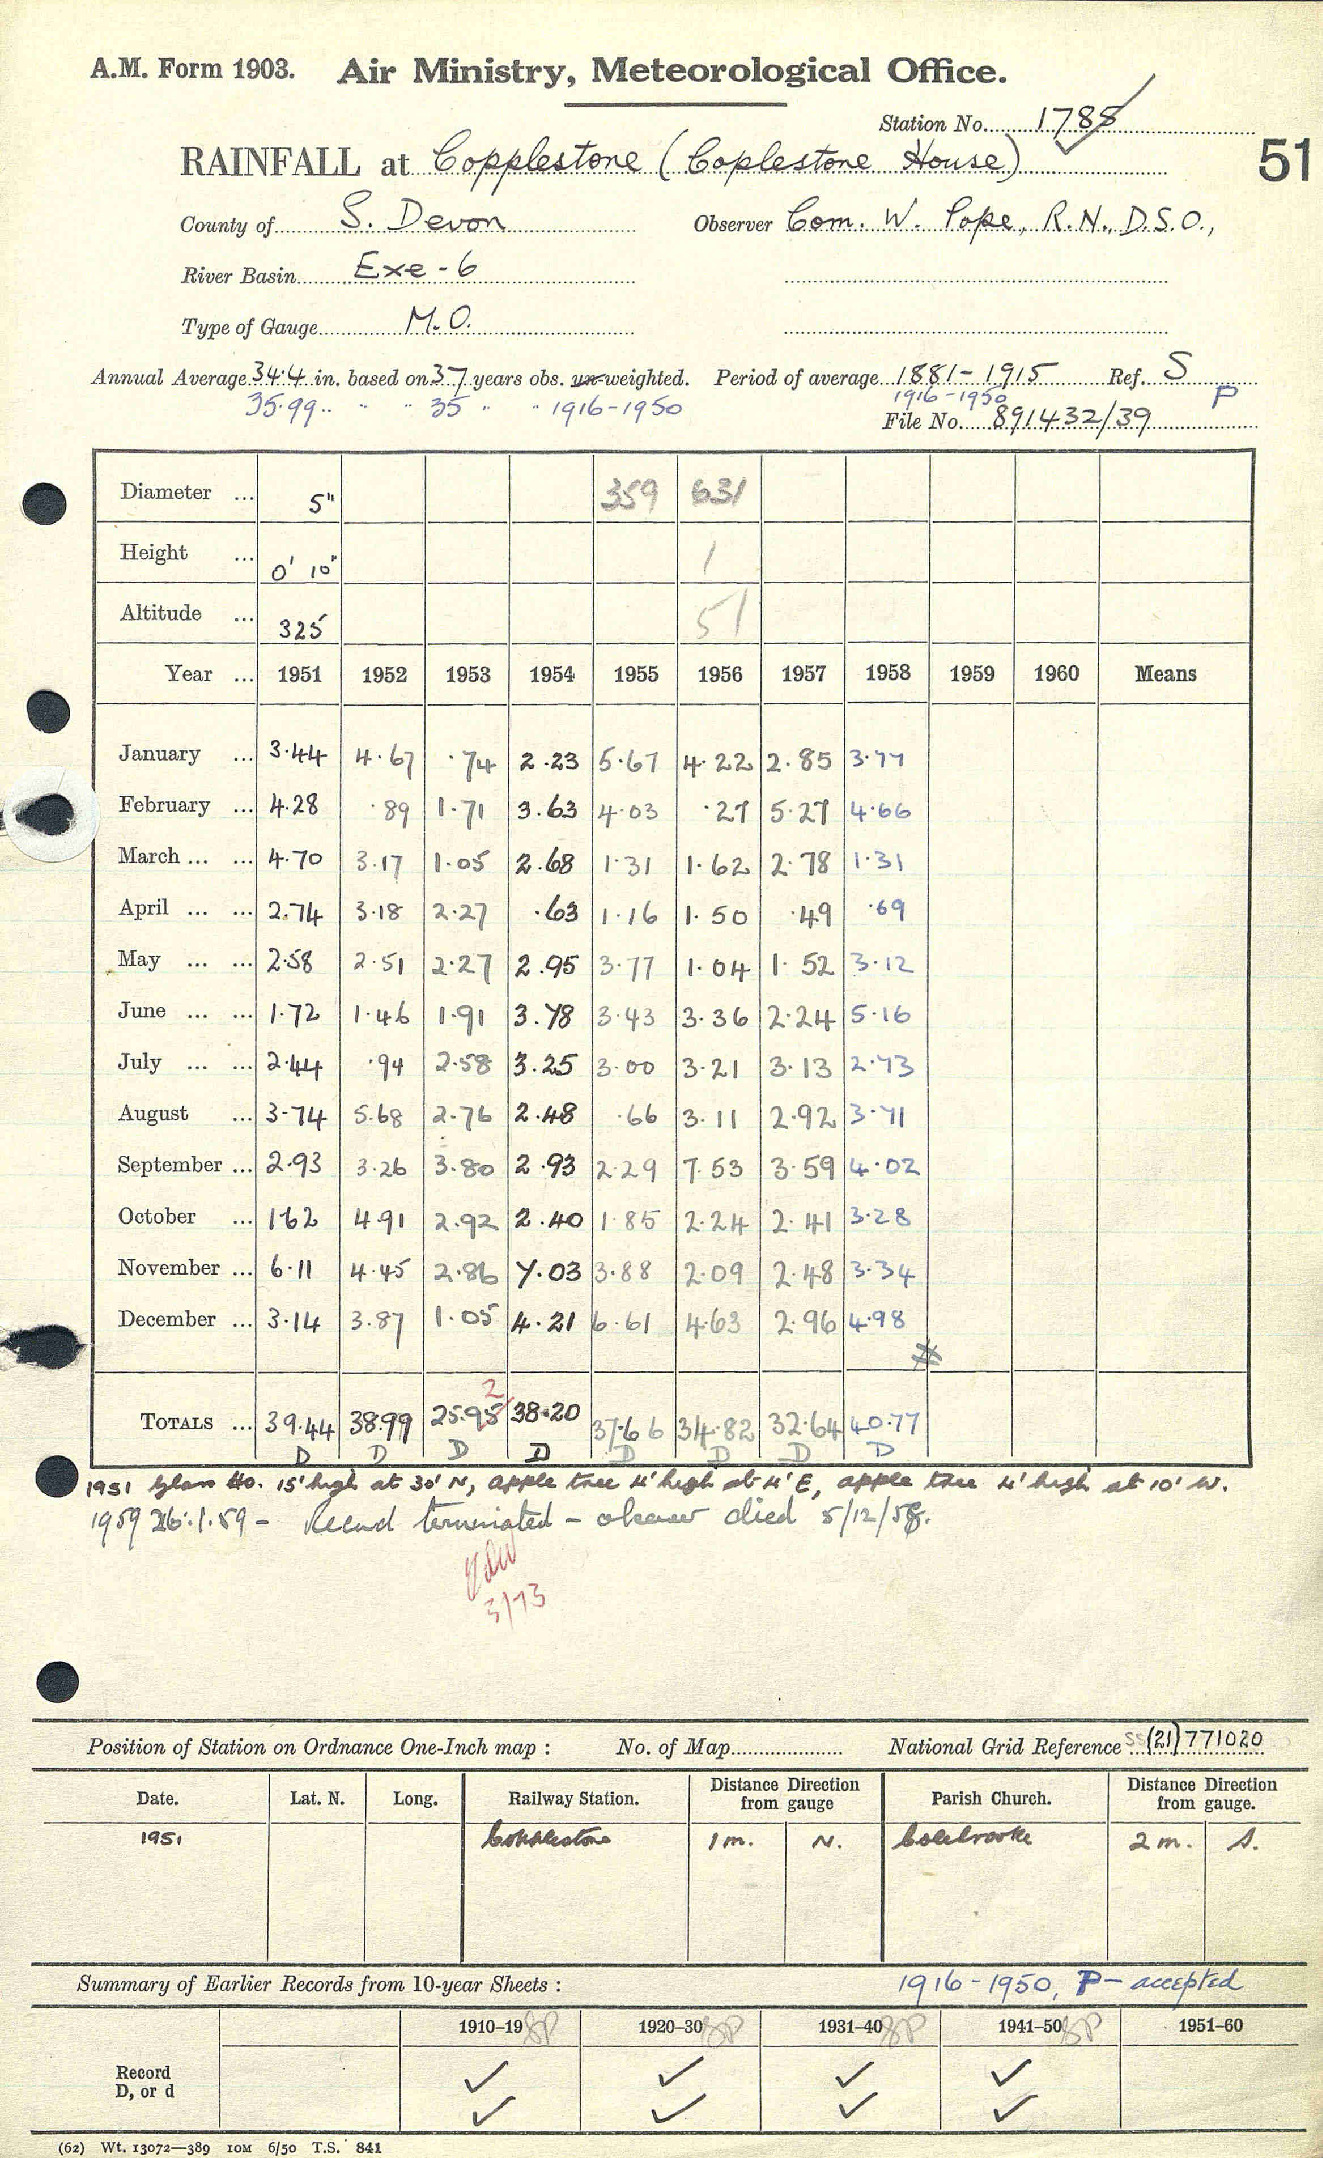 A.M. Form 1903. Air Ministry, Meteorological Office.
Station No. 1788
51
RAINFALL at Copplestone (Coplestone House)
County of S. Devon Observer Com. W. Pope, R.N., D.S.O.,
River Basin Exe - 6
Type of Gauge M.O.
Annual Average 34.4 in. based on 37 years obs. un-weighted. Period of average 1881-1915 Ref. S
35.99 " " 35 " " 1916-1950 1916-1950 P
File No. 891432/39
Diameter ... 5" 359 631
Height ... 0' 10" 1
Altitude ... 325 51
Year ... 1951 1952 1953 1954 1955 1956 1957 1958 1959 1960 Means
January ... 3.44 4.67 .74 2.23 5.67 4.22 2.85 3.77
February ... 4.28 .89 1.71 3.63 4.03 .27 5.27 4.66
March ... ... 4.70 3.17 1.05 2.68 1.31 1.62 2.78 1.31
April ... ... 2.74 3.18 2.27 .63 1.16 1.50 .49 .69
May ... ... 2.58 2.51 2.27 2.95 3.77 1.04 1.52 3.12
June ... ... 1.72 1.46 1.91 3.78 3.43 3.36 2.24 5.16
July ... ... 2.44 .94 2.58 3.25 3.00 3.21 3.13 2.73
August ... 3.74 5.68 2.76 2.48 .66 3.11 2.92 3.71
September ... 2.93 3.26 3.80 2.93 2.29 7.53 3.59 4.02
October ... 1.62 4.91 2.92 2.40 1.85 2.24 2.41 3.28
November ... 6.11 4.45 2.86 7.03 3.88 2.09 2.48 3.34
December ... 3.14 3.87 1.05 4.21 6.61 4.63 2.96 4.98
2
TOTALS ... 39.44 38.99 25.95 38.20 37.66 34.82 32.64 40.77
D D D D D D D D
1951 Glass Ho. 15' high at 30' N, apple tree 4' high at 4' E, apple tree 4' high at 10' W.
1959 26.1.59 - Record terminated - observer died 5/12/58.
3/73
Position of Station on Ordnance One-Inch map : No. of Map National Grid Reference SS (21) 771020
Date. Lat. N. Long. Railway Station. Distance Direction from gauge Parish Church. Distance Direction from gauge.
1951 Copplestone 1 m. N. Colebrooke 2 m. S.
Summary of Earlier Records from 10-year Sheets : 1916-1950, P - accepted
1910-19 SP 1920-30 SP 1931-40 SP 1941-50 SP 1951-60
Record ✓ ✓ ✓ ✓
D, or d ✓ ✓ ✓ ✓
(62) Wt. 13072—389 10M 6/50 T.S. 841